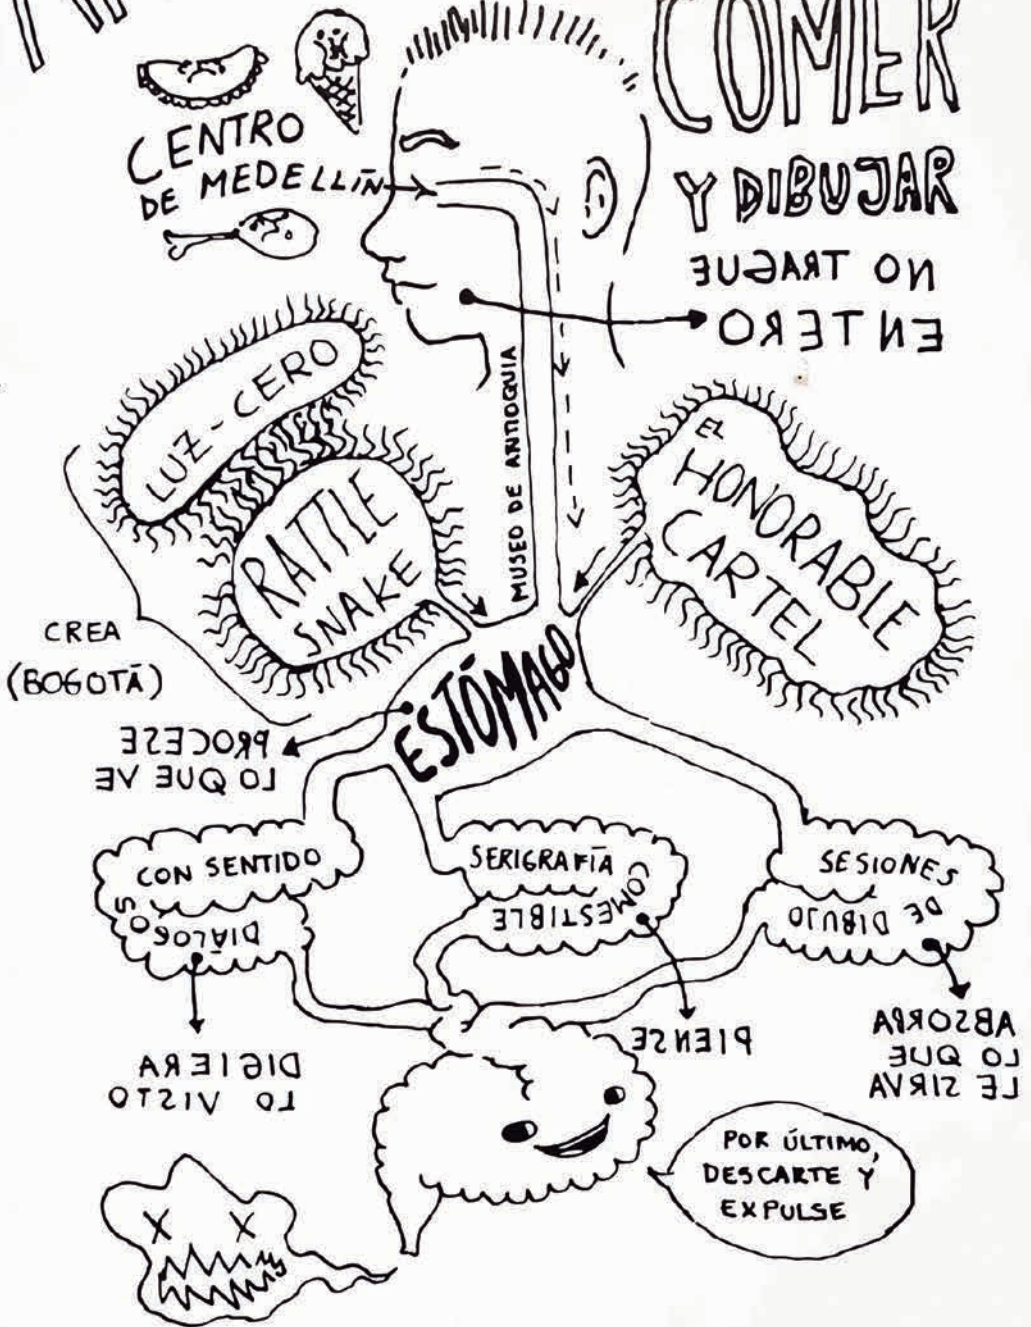 COMER
Y DIBUJAR
NO TRAGUE
ENTERO
CENTRO
DE MEDELLÍN
MUSEO DE ANTIOQUIA
LUZ-CERO
RATTLE
SNAKE
EL
HONORABLE
CARTEL
CREA
(BOGOTÁ)
ESTÓMAGO
PROCESE
LO QUE VE
CON SENTIDO
DIÁLOGOS
SERIGRAFÍA
COMESTIBLE
SESIONES
DE DIBUJO
PIENSE
ABSORBA
LO QUE
LE SIRVA
DIGIERA
LO VISTO
POR ÚLTIMO,
DESCARTE Y
EXPULSE